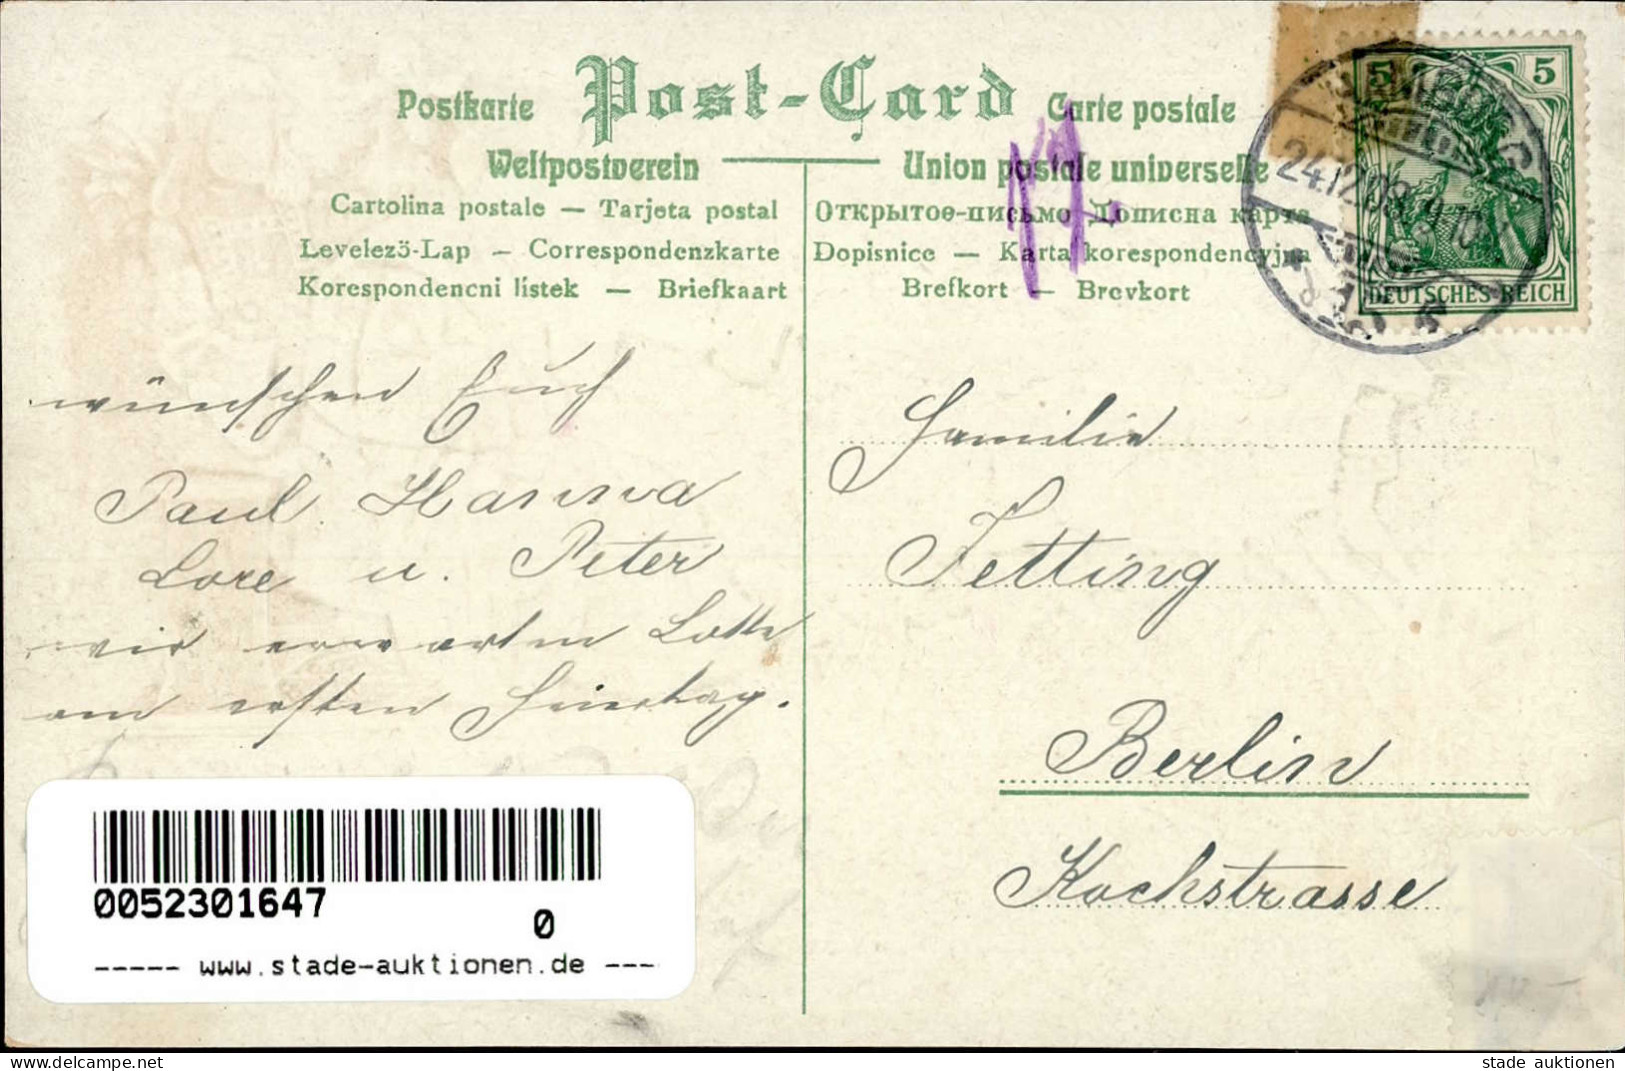 Post-Card
Postkarte
Carte postale
Weltpostverein
Union postale universelle
Cartolina postale — Tarjeta postal
Открытое-письмо Дописна карта
Levelező-Lap — Correspondenzkarte
Dopisnice — Karta korespondencyjna
Korespondencni lístek — Briefkaart
Brefkort — Brevkort
5 5
DEUTSCHES REICH
24.12.08. 9-10
wünschen Euch
Paul. Hanna
Lore u. Peter
wir erwarten Lotte
am ersten Feiertag.
Familie
Fetting
Berlin
Kochstrasse
0052301647
0
----- www.stade-auktionen.de ---
stade auktionen
delcampe.net